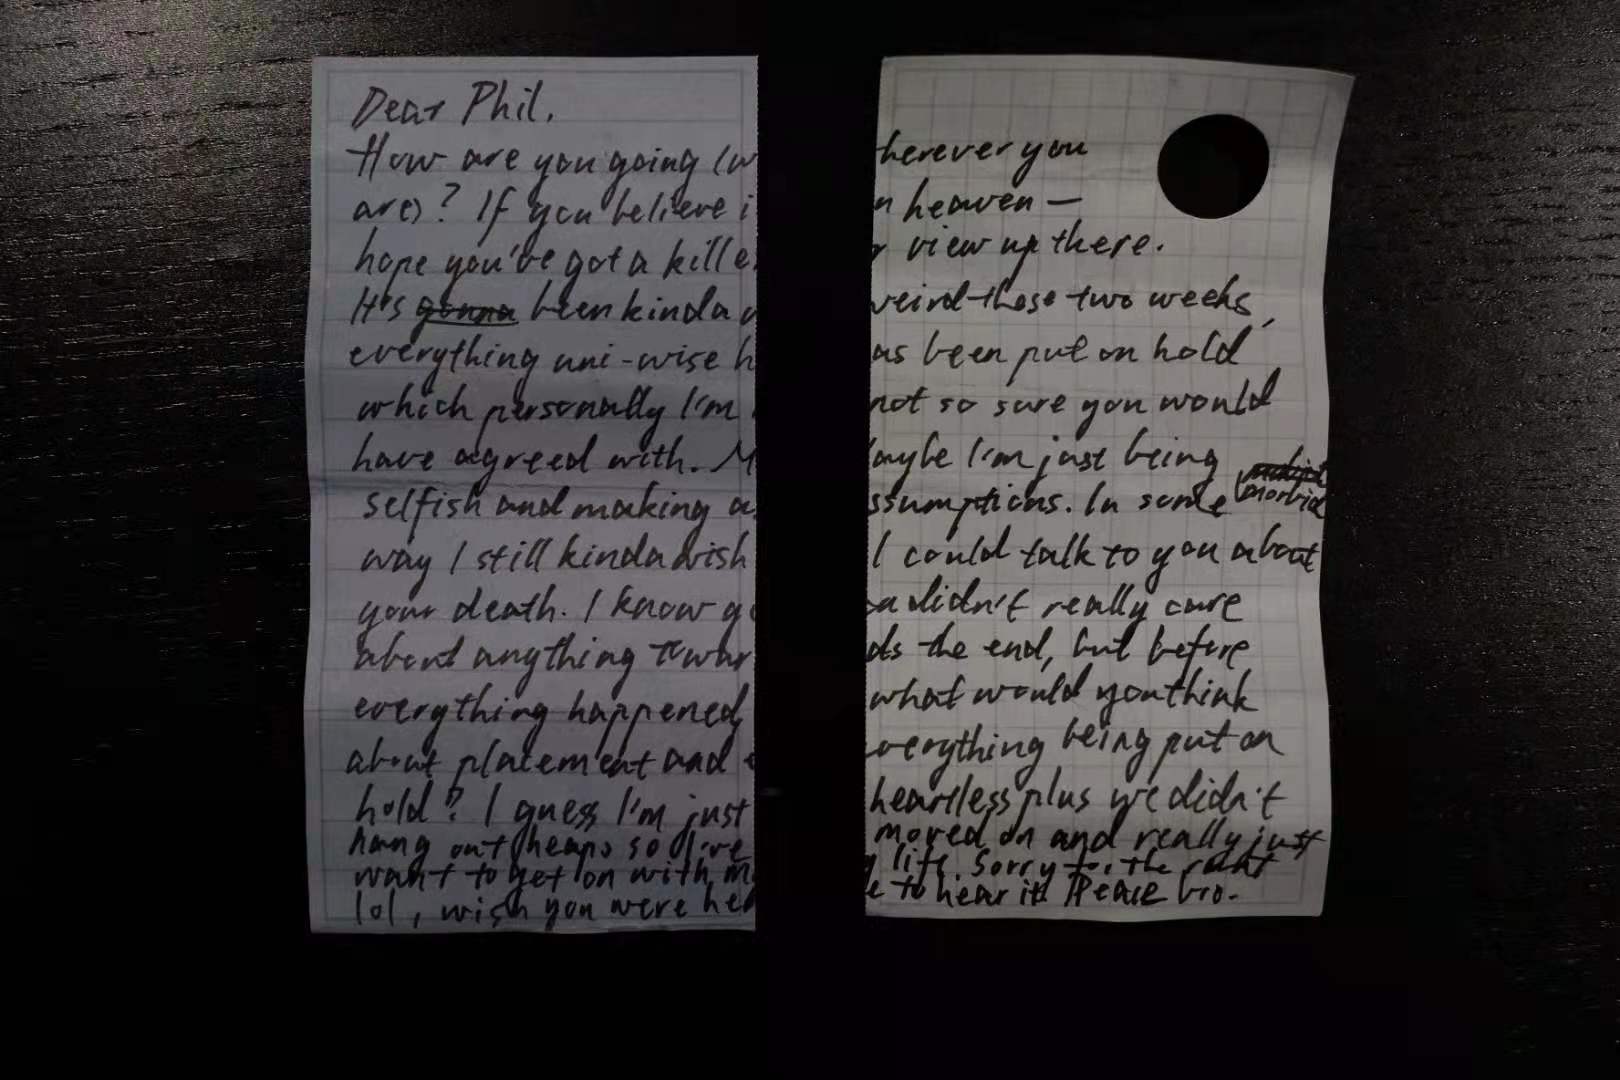 Dear Phil.
How are you going (wherever you
are)? If you believe in heaven —
hope you've got a killer view up there.
It's gonna been kinda weird these two weeks,
everything uni-wise has been put on hold
which personally I'm not so sure you would
have agreed with. Maybe I'm just being
selfish and making assumptions. In some morbid
way I still kinda wish I could talk to you about
your death. I know you didn't really care
about anything towards the end, but before
everything happened, what would you think
about placement and everything being put on
hold? I guess I'm just heartless plus we didn't
hang out heaps so I've moved on and really just
want to get on with my life. Sorry for the rant
lol, wish you were here to hear it. Peace bro.